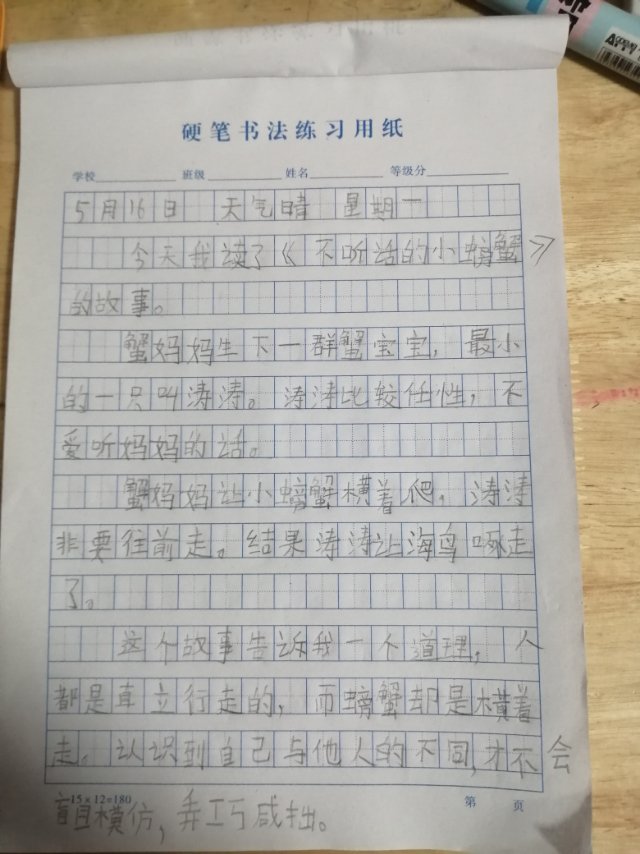 硬笔书法练习用纸
学校 班级 姓名 等级分
5月16日 天气晴 星期一
今天我读了《不听话的小螃蟹》
的故事。
蟹妈妈生下一群蟹宝宝，最小
的一只叫涛涛。涛涛比较任性，不
爱听妈妈的话。
蟹妈妈让小螃蟹横着爬，涛涛
非要往前走。结果涛涛让海鸟啄走
了。
这个故事告诉我一个道理，人
都是直立行走的，而螃蟹却是横着
走。认识到自己与他人的不同，才不会
15×12=180 第 页
盲目模仿，弄工巧成拙。